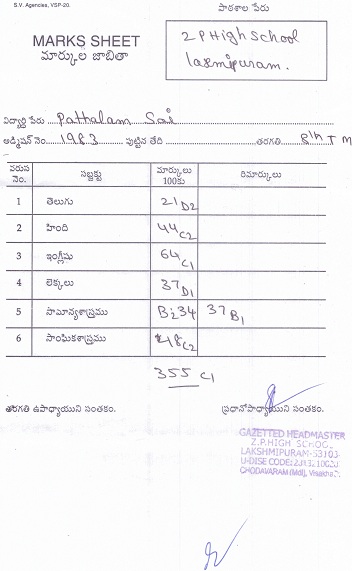 S.V. Agencies, VSP-20.
పాఠశాల పేరు
MARKS SHEET
మార్కుల జాబితా
Z P High School
Laxmipuram.
విద్యార్థి పేరు Pathalam Sai
అడ్మిషన్ నెం. 1983 పుట్టిన తేది తరగతి 8th T M
వరుస నెం. సబ్జక్టు మార్కులు 100కు రిమార్కులు
1 తెలుగు 21 D2
2 హింది 44 C2
3 ఇంగ్లీషు 64 C1
4 లెక్కలు 37 D1
5 సామాన్యశాస్త్రము B:34 37 B1
6 సాంఘికశాస్త్రము 48 C2
355 C1
తరగతి ఉపాధ్యాయుని సంతకం. ప్రధానోపాధ్యాయుని సంతకం.
GAZETTED HEADMASTER
Z.P.HIGH SCHOOL
LAKSHMIPURAM
U-DISE CODE:
CHODAVARAM (Mdl), Visakha